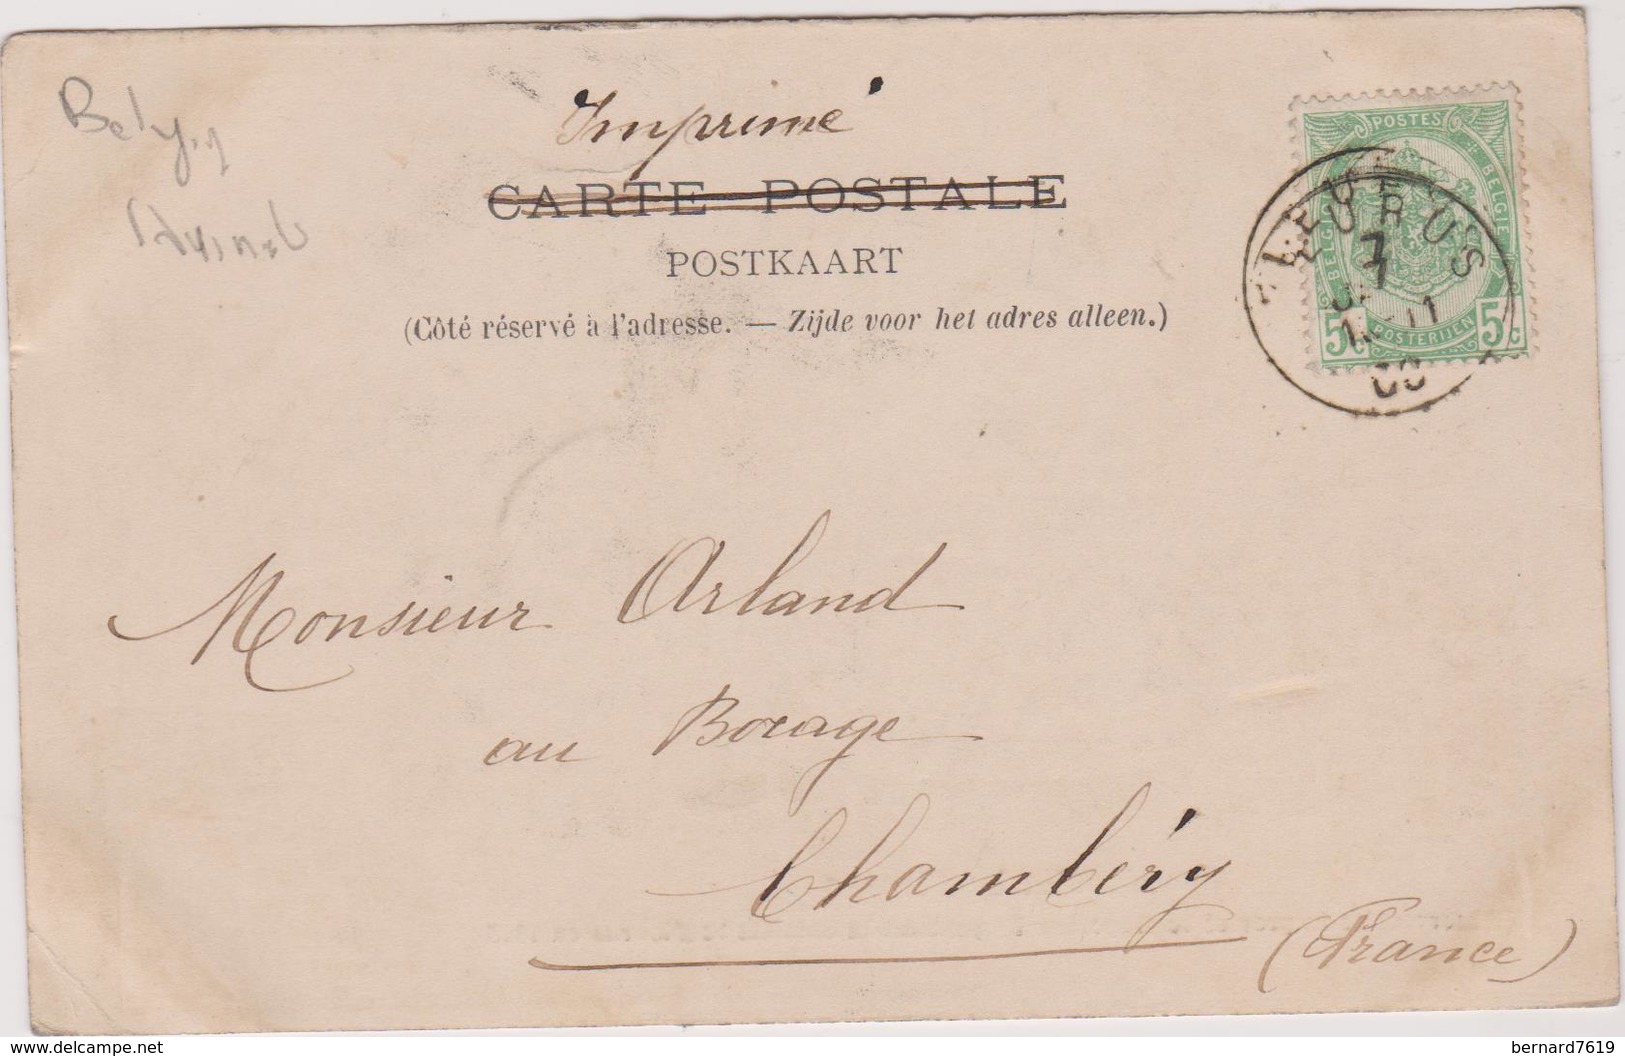 Imprimé
CARTE POSTALE
POSTKAART
(Côté réservé à l'adresse. — Zijde voor het adres alleen.)
POSTES
BELGIQUE
BELGIE
POSTERIJEN
5 C
5 C
FLEURUS
7
Monsieur Arland
au Bocage
Chambéry
(France)
delcampe.net
bernard7619